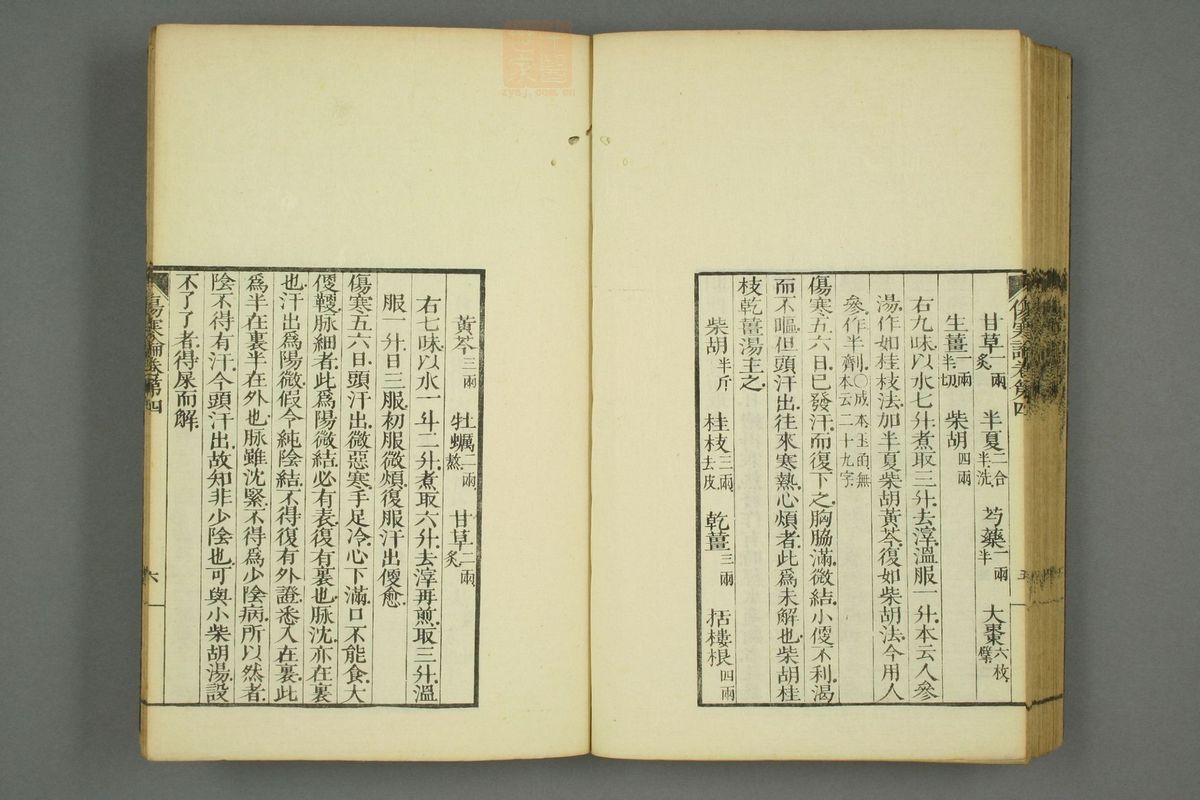 傷寒論卷第四
甘草一兩炙 半夏二合半洗 芍藥一兩半 大棗六枚擘
生薑一兩半切 柴胡四兩
右九味以水七升煮取三升去滓溫服一升本云人參
湯作如桂枝法加半夏柴胡黃芩復如柴胡法今用人
參作半劑○成本玉函無本云二十九字
傷寒五六日已發汗而復下之胸脇滿微結小便不利渴
而不嘔但頭汗出往來寒熱心煩者此爲未解也柴胡桂
枝乾薑湯主之
柴胡半斤 桂枝三兩去皮 乾薑三兩 栝樓根四兩
五
黃芩三兩 牡蠣二兩熬 甘草二兩炙
右七味以水一斗二升煮取六升去滓再煎取三升溫
服一升日三服初服微煩復服汗出便愈
傷寒五六日頭汗出微惡寒手足冷心下滿口不能食大
便鞕脉細者此爲陽微結必有表復有裏也脉沈亦在裏
也汗出爲陽微假令純陰結不得復有外證悉入在裏此
爲半在裏半在外也脉雖沈緊不得爲少陰病所以然者
陰不得有汗今頭汗出故知非少陰也可與小柴胡湯設
不了了者得屎而解
傷寒論卷第四
六
zysj.com.cn